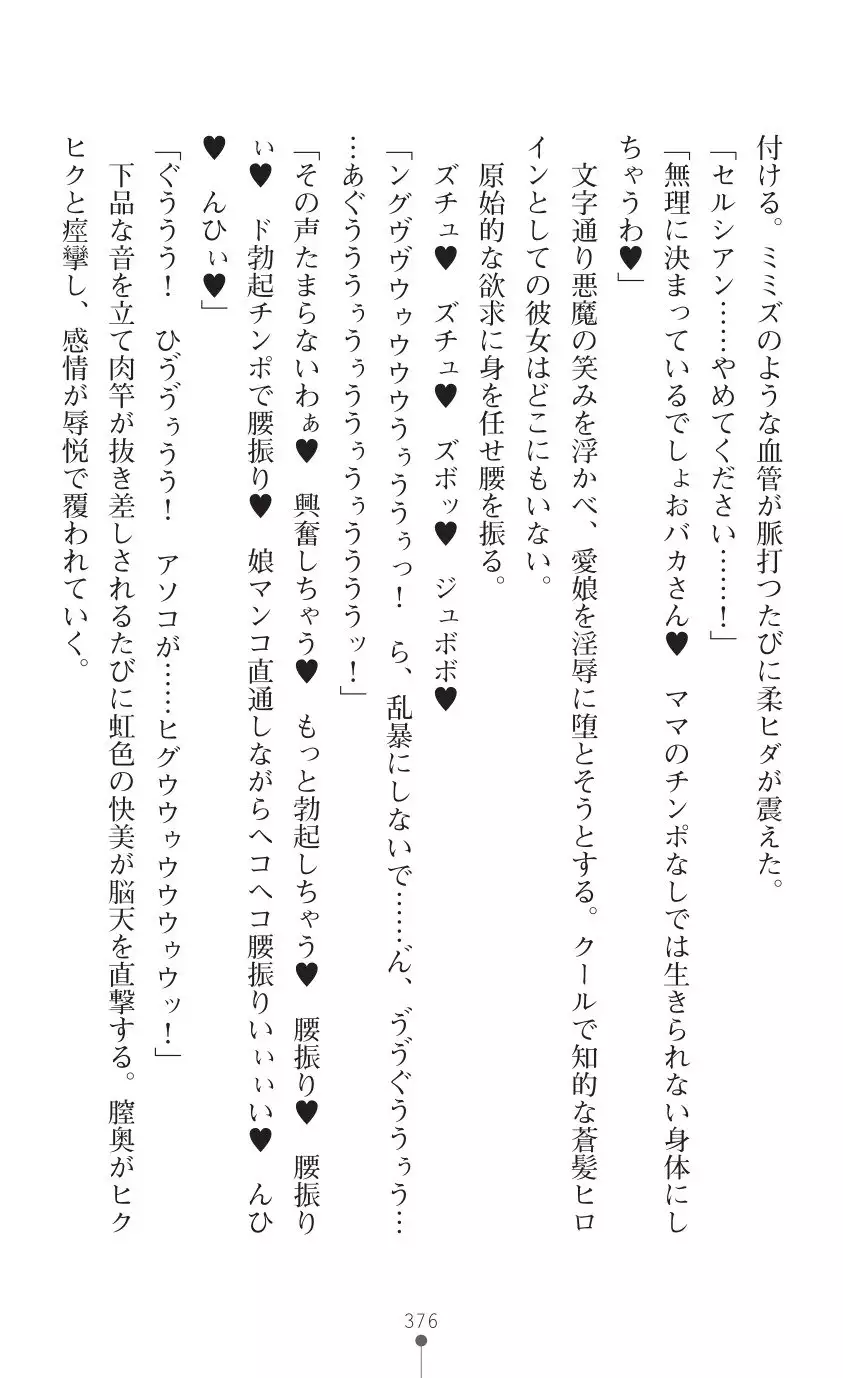 付ける。ミミズのような血管が脈打つたびに柔ヒダが震えた。
「セルシアン……やめてください……！」
「無理に決まっているでしょおバカさん♥　ママのチンポなしでは生きられない身体にし
ちゃうわ♥」
　文字通り悪魔の笑みを浮かべ、愛娘を淫辱に堕とそうとする。クールで知的な蒼髪ヒロ
インとしての彼女はどこにもいない。
　原始的な欲求に身を任せ腰を振る。
　ズチュ♥　ズチュ♥　ズボッ♥　ジュボボ♥
「ングヴヴウゥウウウうぅううぅっ！　ら、乱暴にしないで……ん゛、ゔゔぐううぅう…
…あぐうううぅうぅううぅうぅうううッ！」
「その声たまらないわぁ♥　興奮しちゃう♥　もっと勃起しちゃう♥　腰振り♥　腰振り
ぃ♥　ド勃起チンポで腰振り♥　娘マンコ直通しながらヘコヘコ腰振りいぃぃい♥　んひ
♥　んひぃ♥」
「ぐううう！　ひゔゔぅうう！　アソコが……ヒグウウゥウウウゥウッ！」
　下品な音を立て肉竿が抜き差しされるたびに虹色の快美が脳天を直撃する。膣奥がヒク
ヒクと痙攣し、感情が辱悦で覆われていく。
376